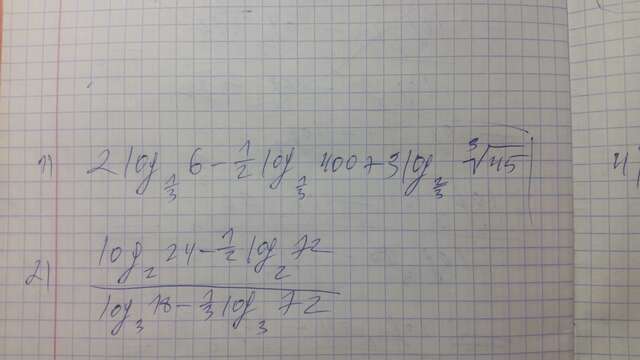 1) 2 log_{1/3} 6 - 1/2 log_{1/3} 400 + 3 log_{1/3} ∛45
2) (log_2 24 - 1/2 log_2 72) / (log_3 18 - 1/3 log_3 72)
4)